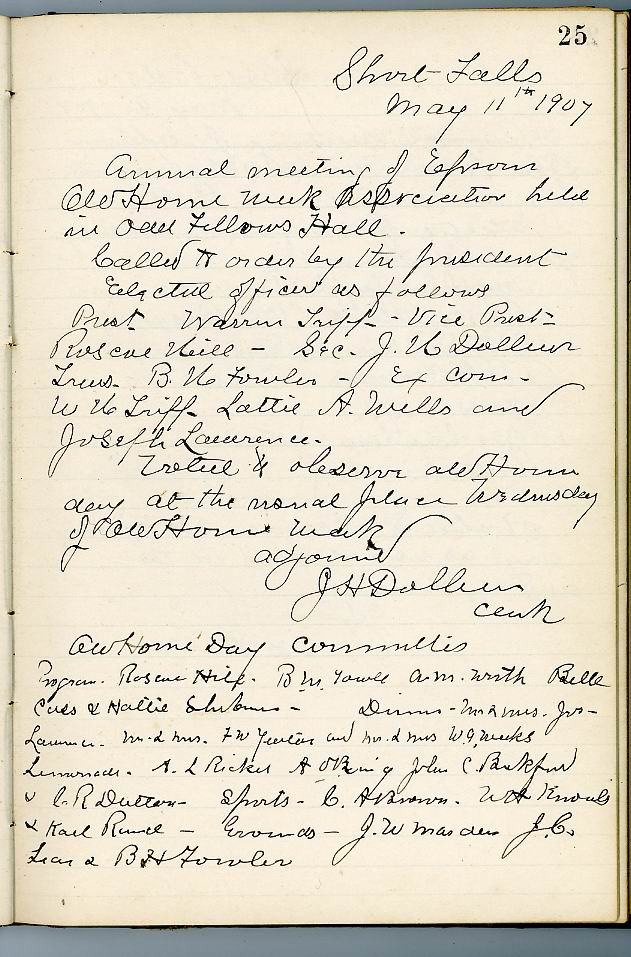 25
Short Falls
May 11th 1907
Annual meeting of Epsom
Old Home Week Association held
in Odd Fellows Hall.
Called to order by the president
Elected officers as follows
Prest Warren Tripp - Vice Prest-
Roscoe Hill - Sec. J. H Dolbeer
Treas. B. H Fowler - Ex Com -
W H Tripp Lattie A. Wells and
Joseph Lawrence.
Voted to observe old Home
day at the usual place Wednesday
of Old Home Week
adjourned
J H Dolbeer
Clerk
Old Home Day Committees
Program. Roscoe Hill. B M. Towle A. M. Wirth Belle
Cass & Hattie - Dinner - Mr & Mrs. Jos -
Lawrence. Mr. & Mrs. F W Yeaton and Mr. & Mrs W. G. Weeks
Lemonade. A. L Ricker A O King John C. Bickford
& C. R Dutton - Sports - C. A Brown. W H Knowles
& Karl - Grounds - J. W Marden J. C.
Lear & B H Fowler